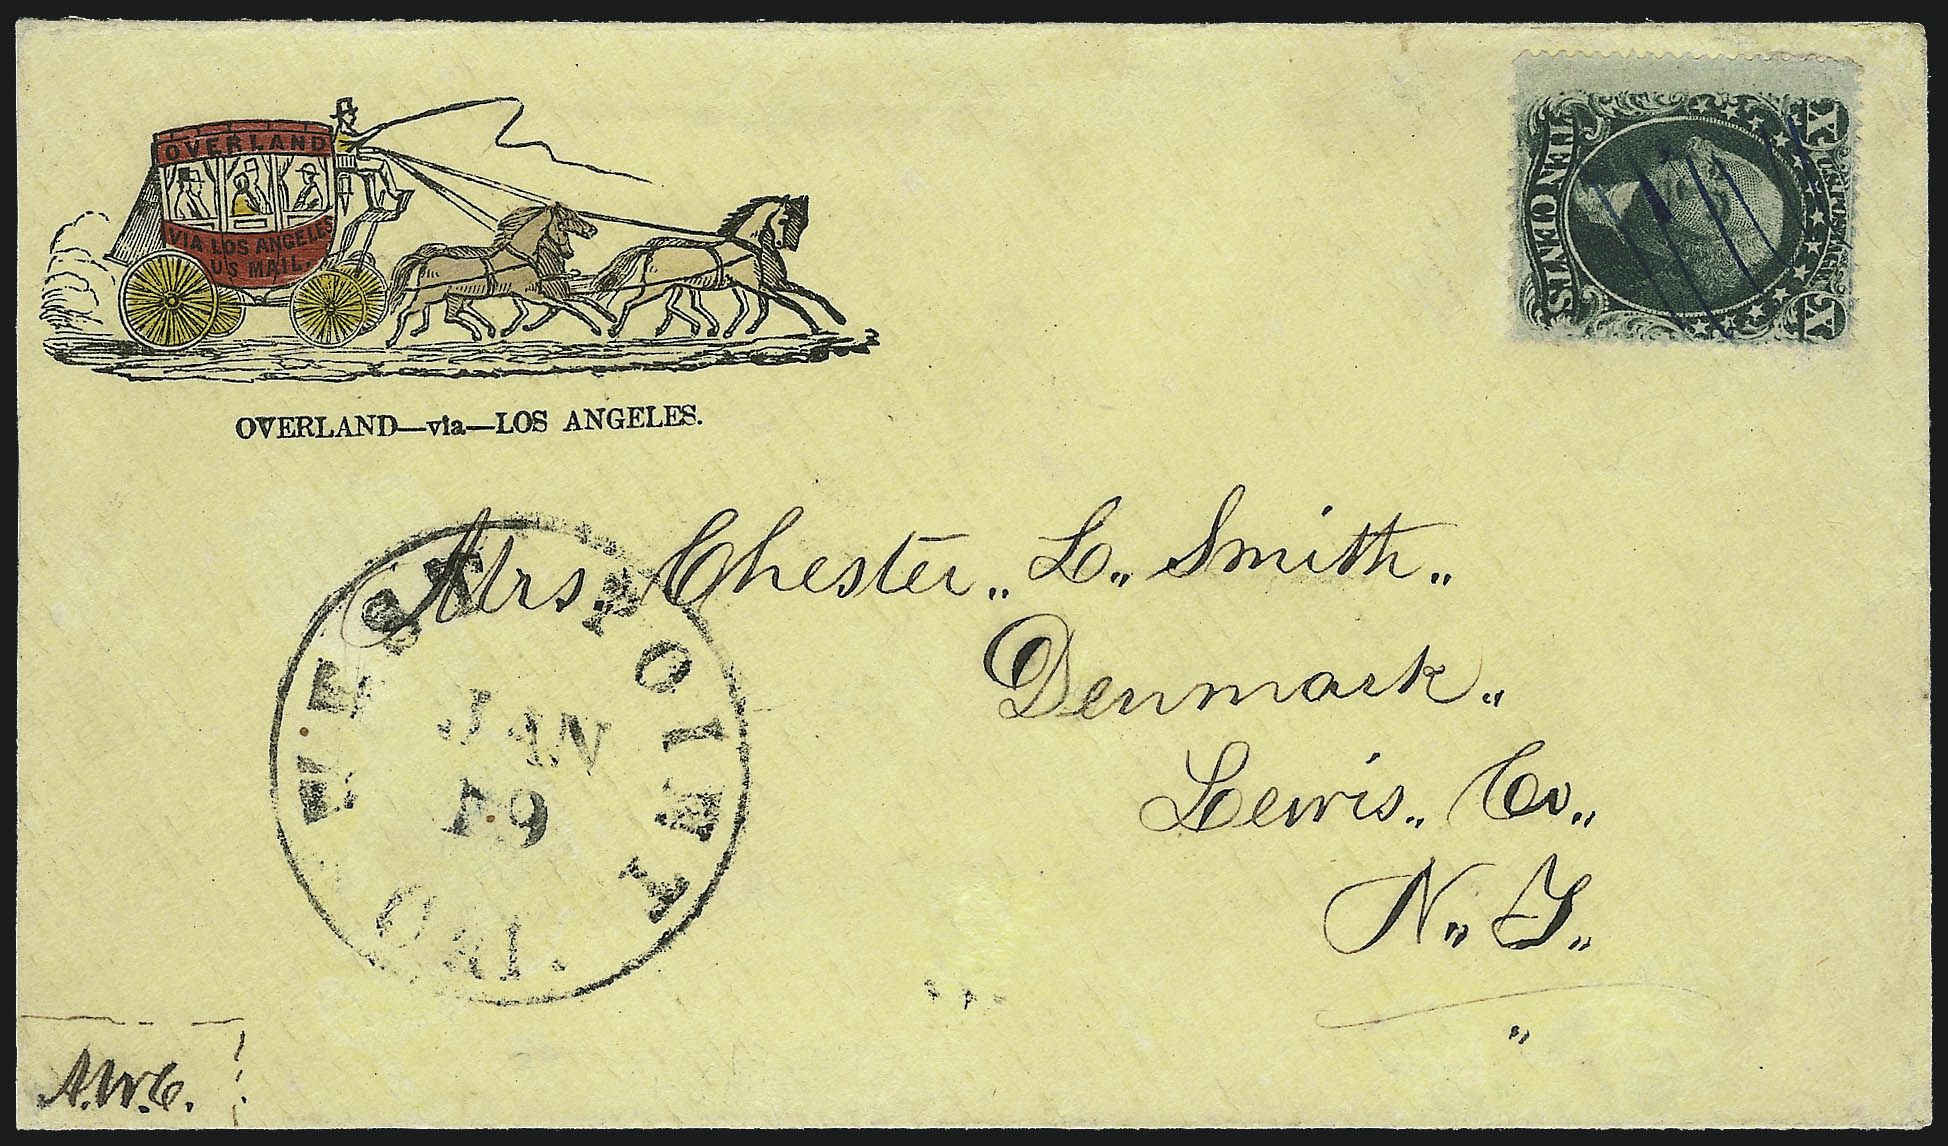 OVERLAND
VIA LOS ANGELES
US MAIL.
OVERLAND—via—LOS ANGELES.
U.S. POSTAGE
X X
TEN CENTS
Mrs. Chester„ L„ Smith„
Denmark„
Lewis„ Co„
N„ Y„
„
WEST POINT
JAN
19
CAL.
A.W.C.